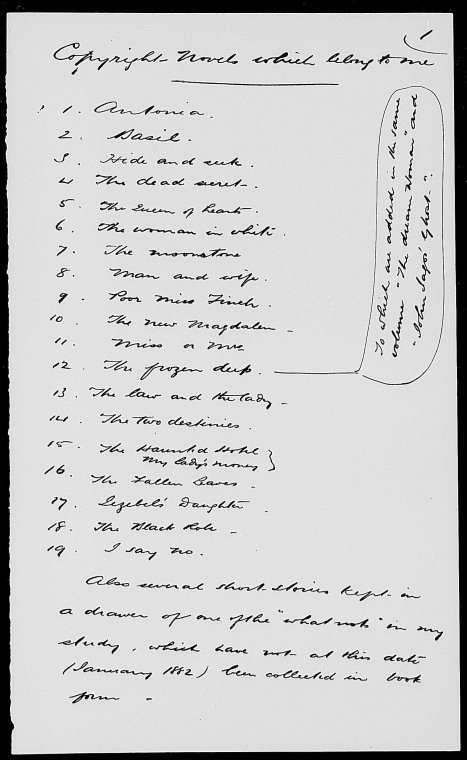 1
Copyright Novels which belong to me
1. Antonia.
2. Basil.
3. Hide and seek.
4 The dead secret.
5. The Queen of hearts.
6. The woman in white.
7. The moonstone
8. Man and wife.
9. Poor Miss Finch.
10. The new Magdalen
11. Miss or Mrs
12. The frozen deep.
To which are added in the same
volume "The dream Woman" and
"John Jago's Ghost".
13. The law and the lady
14. The two destinies.
15. The Haunted Hotel
My lady's money
16. The Fallen Leaves
17. Jezebel's Daughter
18. The Black Robe
19. I say no.
Also several short stories kept in
a drawer of one of the "what nots" in my
study, which have not at this date
(January 1882) been collected in book
form